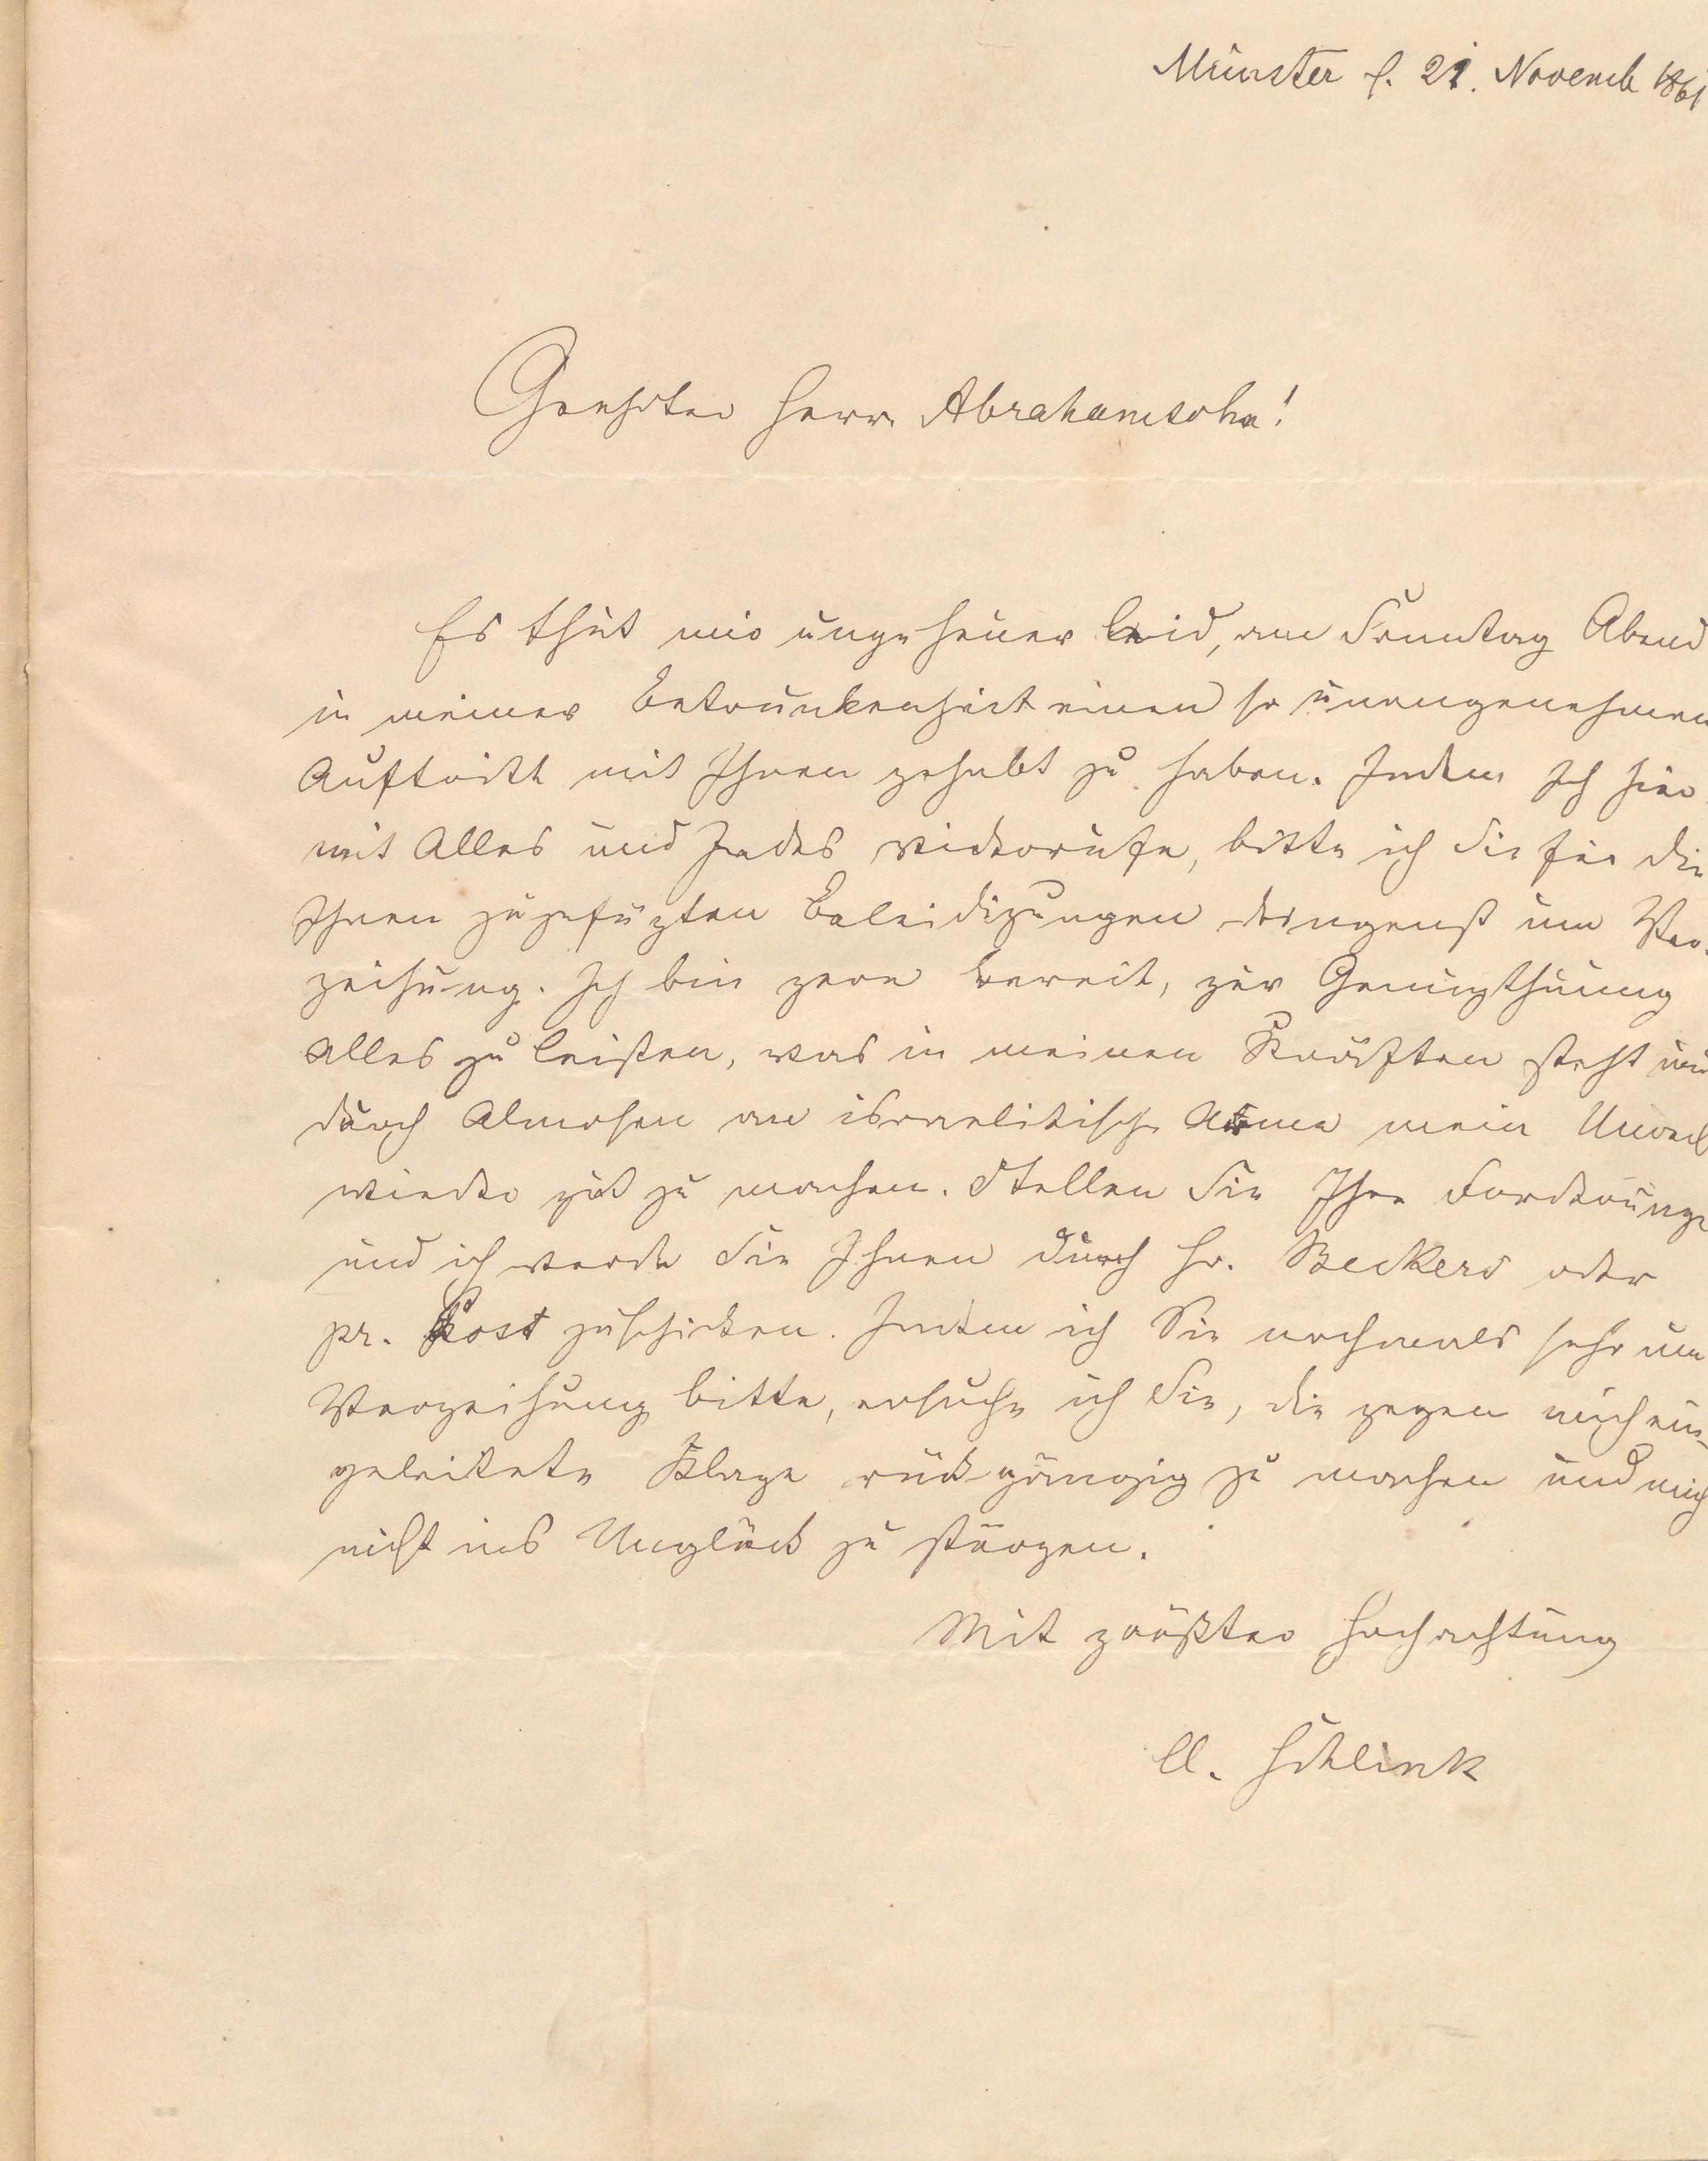 Münster d. 21. Novemb 1861
Geehrter Herr Abrahamsohn!
Es thut mir ungeheuer leid, am Sonntag Abend
in meiner Betrunkenheit einen so unangenehmen
Auftritt mit Ihnen gehabt zu haben. Indem Ich hier
mit Alles und Jedes widerrufe, bitte ich Sie für die
Ihnen zugefügten Beleidigungen dringenst um Ver-
zeihung. Ich bin gern bereit, zur Genugthuung
Alles zu leisten, was in meinen Kräften steht und
durch Almosen an israelitische Arme mein
wieder gut zu machen. Stellen Sie Ihre Forderunge
und ich werde Sie Ihnen durch Hr. Beckers oder
pr. Post zuschicken. Indem ich Sie nochmals sehr um
Verzeihung bitte, ersuche ich Sie, die gegen mich ein-
geleitete Klage rückgängig zu machen und mich
nicht ins Unglück zu stürzen.
Mit größter Hochachtung
Schlink